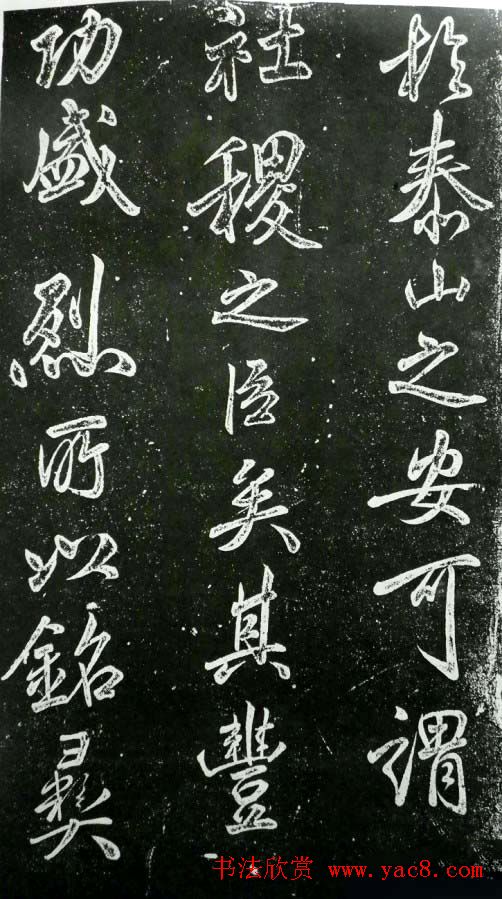 於泰山之安可謂
社稷之臣矣其豐
功盛烈所以銘彝
书法欣赏 www.yac8.com